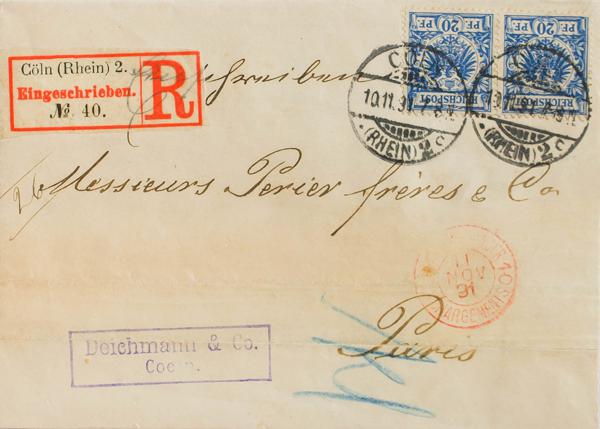 20 PF.
20 PF.
REICHSPOST
REICHSPOST
CÖLN
10.11.91
(RHEIN) 2 c
10.11.91
(RHEIN) 2 c
Cöln (Rhein) 2.
Eingeschrieben.
№. 40.
R
Einschreiben
Messieurs Perier frères & Co.
11
NOV
91
CHARGEMENTS
Paris
Deichmann & Co.
Coeln.